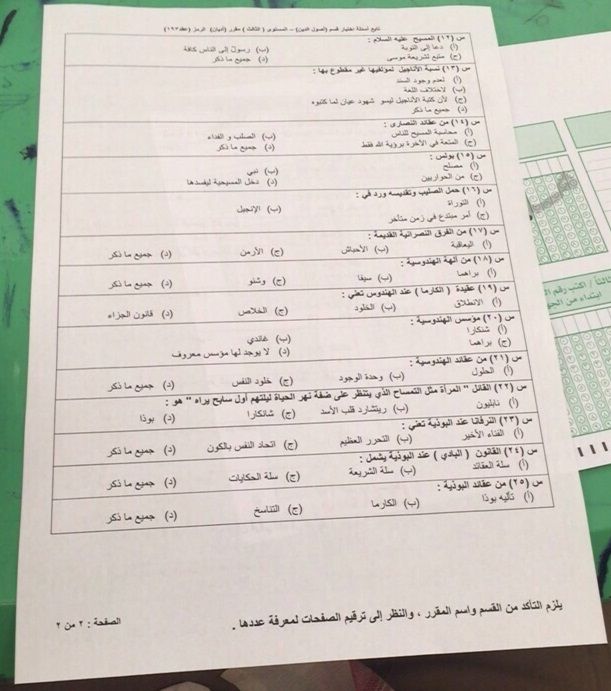 تابع أسئلة اختبار قسم (أصول الدين) – المستوى ( الثالث ) مقرر (أديان) الرمز (عقد١٩٣)
س (١٢) المسيح عليه السلام :
(أ) دعا إلى التوبة (ب) رسول إلى الناس كافة
(ج) متبع لشريعة موسى (د) جميع ما ذكر
س (١٣) نسبة الأناجيل لمؤلفيها غير مقطوع بها :
(أ) لعدم وجود السند
(ب) لاختلاف اللغة
(ج) لأن كتبة الأناجيل ليسو شهود عيان لما كتبوه
(د) جميع ما ذكر
س (١٤) من عقائد النصارى :
(أ) محاسبة المسيح للناس (ب) الصلب و الفداء
(ج) المتعة في الآخرة برؤية الله فقط (د) جميع ما ذكر
س (١٥) بولس :
(أ) مصلح (ب) نبي
(ج) من الحواريين (د) دخل المسيحية ليفسدها
س (١٦) حمل الصليب وتقديسه ورد في :
(أ) التوراة (ب) الإنجيل
(ج) أمر مبتدع في زمن متأخر
س (١٧) من الفرق النصرانية القديمة :
(أ) اليعاقبة (ب) الأحباش (ج) الأرمن (د) جميع ما ذكر
س (١٨) من آلهة الهندوسية :
(أ) براهما (ب) سيفا (ج) وشنو (د) جميع ما ذكر
س (١٩) عقيدة ( الكارما ) عند الهندوس تعني :
(أ) الانطلاق (ب) الخلود (ج) الخلاص (د) قانون الجزاء
س (٢٠) مؤسس الهندوسية :
(أ) شنكارا (ب) غاندي
(ج) براهما (د) لا يوجد لها مؤسس معروف
س (٢١) من عقائد الهندوسية :
(أ) الحلول (ب) وحدة الوجود (ج) خلود النفس (د) جميع ما ذكر
س (٢٢) القائل " المرأة مثل التمساح الذي ينتظر على ضفة نهر الحياة ليلتهم أول سابح يراه " هو :
(أ) نابليون (ب) ريتشارد قلب الأسد (ج) شانكارا (د) بوذا
س (٢٣) النرفانا عند البوذية تعني :
(أ) الفناء الأخير (ب) التحرر العظيم (ج) اتحاد النفس بالكون (د) جميع ما ذكر
س (٢٤) القانون ( البادي ) عند البوذية يشمل :
(أ) سلة العقائد (ب) سلة الشريعة (ج) سلة الحكايات (د) جميع ما ذكر
س (٢٥) من عقائد البوذية :
(أ) تأليه بوذا (ب) الكارما (ج) التناسخ (د) جميع ما ذكر
يلزم التأكد من القسم واسم المقرر ، والنظر إلى ترقيم الصفحات لمعرفة عددها .
الصفحة : ٢ من ٢